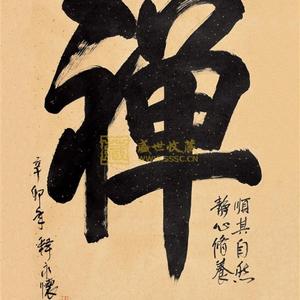 禅
順其自然
静心脩養
辛卯年釋永懷
盛世收藏
SSSC.CN